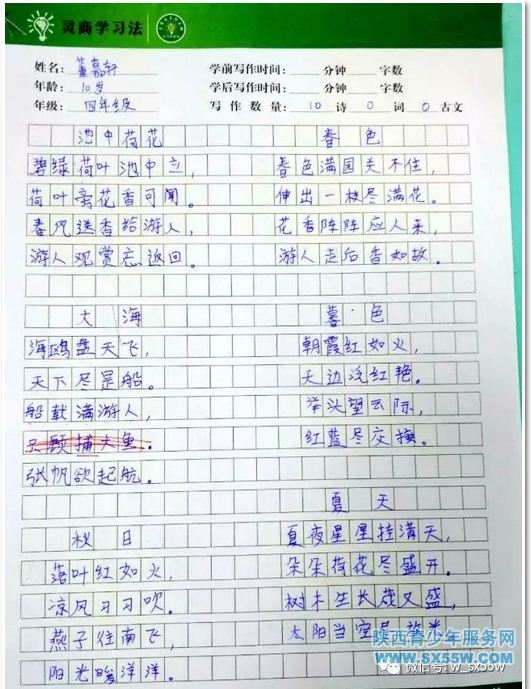 灵商学习法
姓名：董嘉轩
学前写作时间：分钟 字数
年龄：10岁
学后写作时间：分钟 字数
年级：四年级
写作数量：10 诗 0 词 0 古文
池中荷花
碧绿荷叶池中立，
荷叶旁花香可闻。
春风送香给游人，
游人观赏忘返回。
春色
春色满园关不住，
伸出一枝尽满花。
花香阵阵应人来，
游人走后香如故。
大海
海鸥盘天飞，
天下尽是船。
船载满游人，
只顾捕大鱼.
张帆欲起航。
暮色
朝霞红如火，
天边泛红艳。
举头望云际，
红蓝尽交接。
秋日
落叶红如火，
凉风习习吹。
燕子往南飞，
阳光暖洋洋。
夏天
夏夜星星挂满天，
朵朵荷花尽盛开。
树木生长茂又盛，
太阳当空
陕西青少年服务网
www.sx55w.com
微信号: W_sx55w